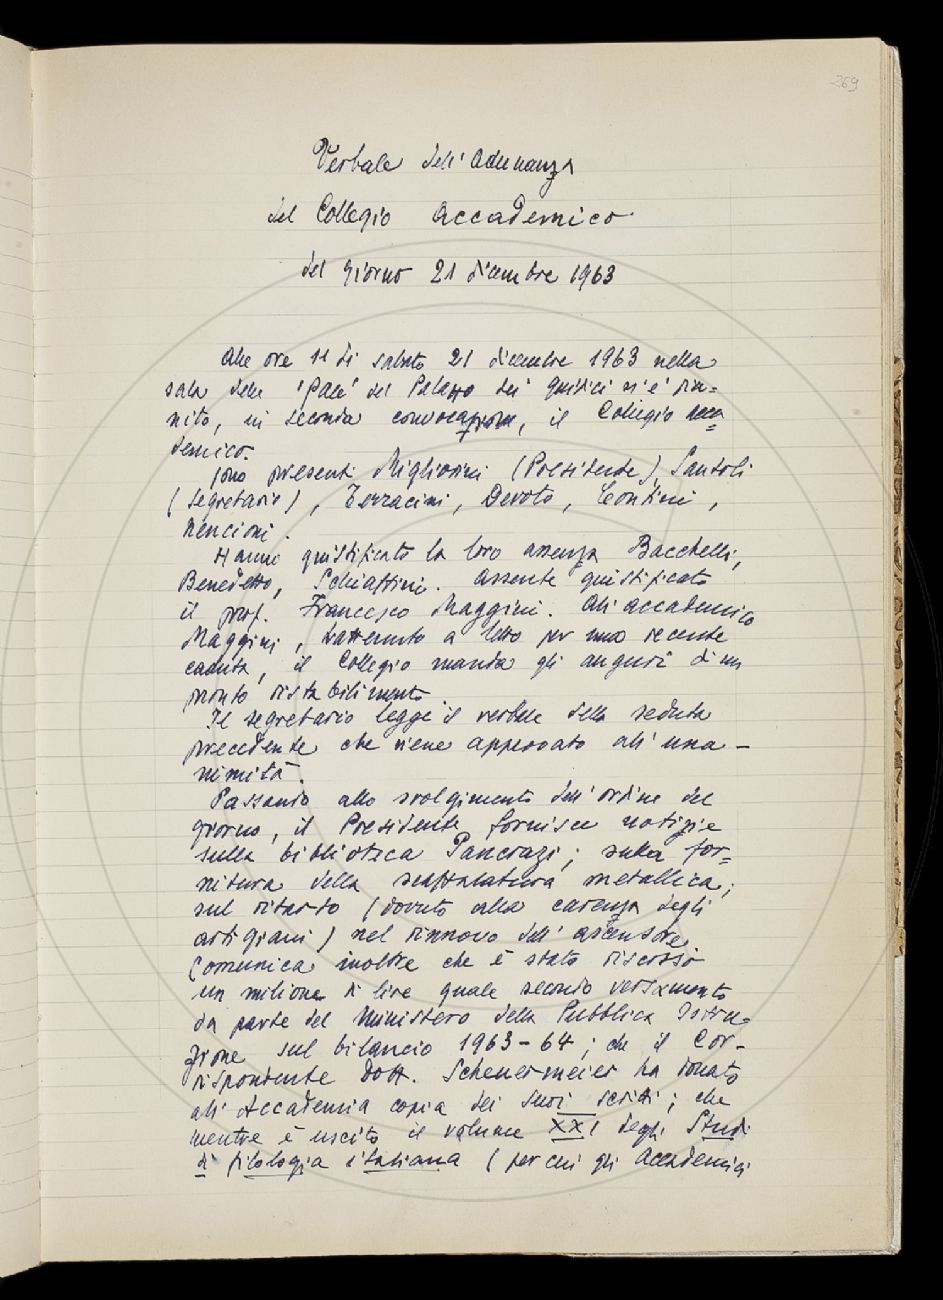 269
Verbale dell'Adunanza
del Collegio Accademico
del giorno 21 dicembre 1963
Alle ore 11 di sabato 21 dicembre 1963 nella
sala delle "Pale" del Palazzo dei Giudici si è riu=
nito, in seconda convocazione, il Collegio Acca=
demico.
Sono presenti Migliorini (Presidente), Santoli
(segretario), Terracini, Devoto, Contini,
Nencioni.
Hanno giustificato la loro assenza Bacchelli,
Benedetto, Schiaffini. Assente giustificato
il prof. Francesco Maggini. All'accademico
Maggini, trattenuto a letto per una recente
caduta, il Collegio manda gli auguri di un
pronto ristabilimento.
Il segretario legge il verbale della seduta
precedente che viene approvato all'una-
nimità.
Passando allo svolgimento dell'ordine del
giorno, il Presidente fornisce notizie
sulla biblioteca Pancrazi; sulla for=
nitura della scaffalatura metallica;
sul ritardo (dovuto alla carenza degli
artigiani) nel rinnovo dell'ascensore.
Comunica inoltre che è stato riscosso
un milione di lire quale secondo versamento
da parte del Ministero della Pubblica Istru=
zione sul bilancio 1963-64; che il Cor-
rispondente Dott. Scheuermeier ha donato
all'Accademia copia dei suoi scritti; che
mentre è uscito il volume XXI degli Studi
di filologia italiana (per cui gli Accademici